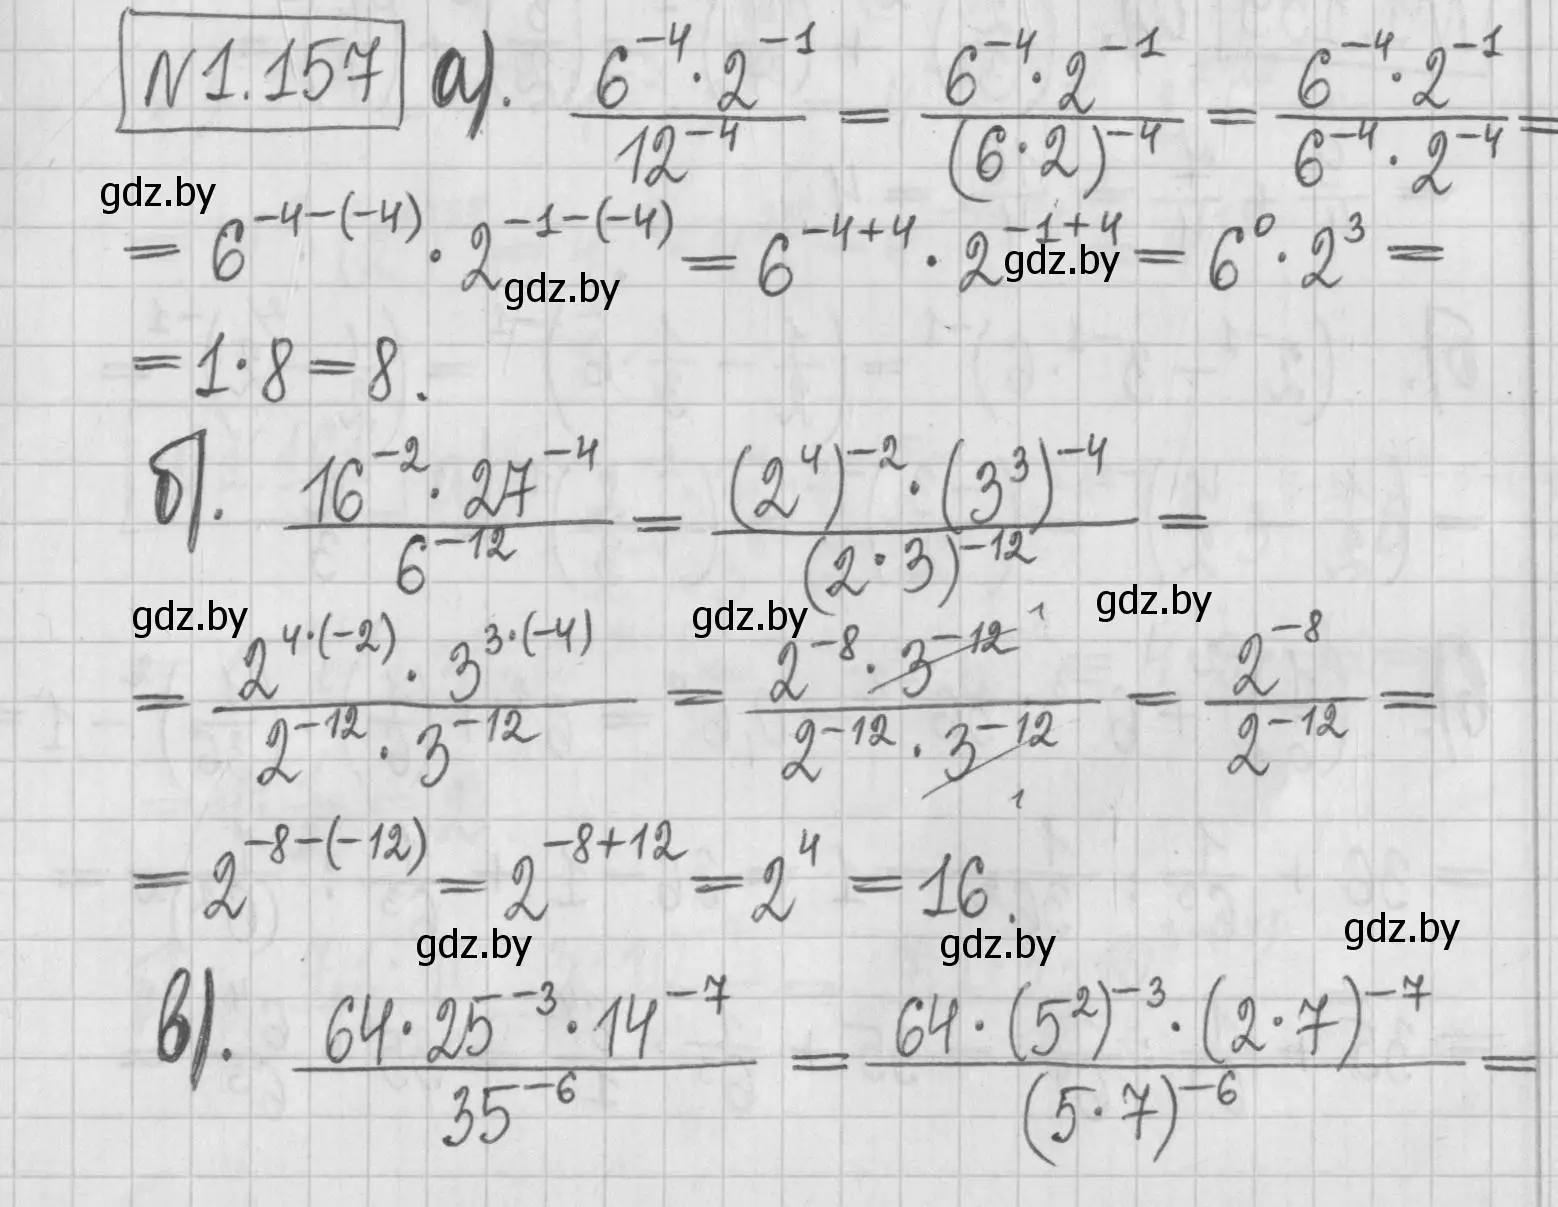 №1.157 а). \frac{6^{-4} \cdot 2^{-1}}{12^{-4}} = \frac{6^{-4} \cdot 2^{-1}}{(6 \cdot 2)^{-4}} = \frac{6^{-4} \cdot 2^{-1}}{6^{-4} \cdot 2^{-4}} =
gdz.by
= 6^{-4-(-4)} \cdot 2^{-1-(-4)} = 6^{-4+4} \cdot 2^{-1+4} = 6^{0} \cdot 2^{3} =
gdz.by gdz.by
= 1 \cdot 8 = 8.
б). \frac{16^{-2} \cdot 27^{-4}}{6^{-12}} = \frac{(2^{4})^{-2} \cdot (3^{3})^{-4}}{(2 \cdot 3)^{-12}} =
gdz.by gdz.by gdz.by
= \frac{2^{4 \cdot (-2)} \cdot 3^{3 \cdot (-4)}}{2^{-12} \cdot 3^{-12}} = \frac{2^{-8} \cdot 3^{-12} 1}{2^{-12} \cdot 3^{-12} 1} = \frac{2^{-8}}{2^{-12}} =
= 2^{-8-(-12)} = 2^{-8+12} = 2^{4} = 16.
gdz.by gdz.by gdz.by
в). \frac{64 \cdot 25^{-3} \cdot 14^{-7}}{35^{-6}} = \frac{64 \cdot (5^{2})^{-3} \cdot (2 \cdot 7)^{-7}}{(5 \cdot 7)^{-6}} =